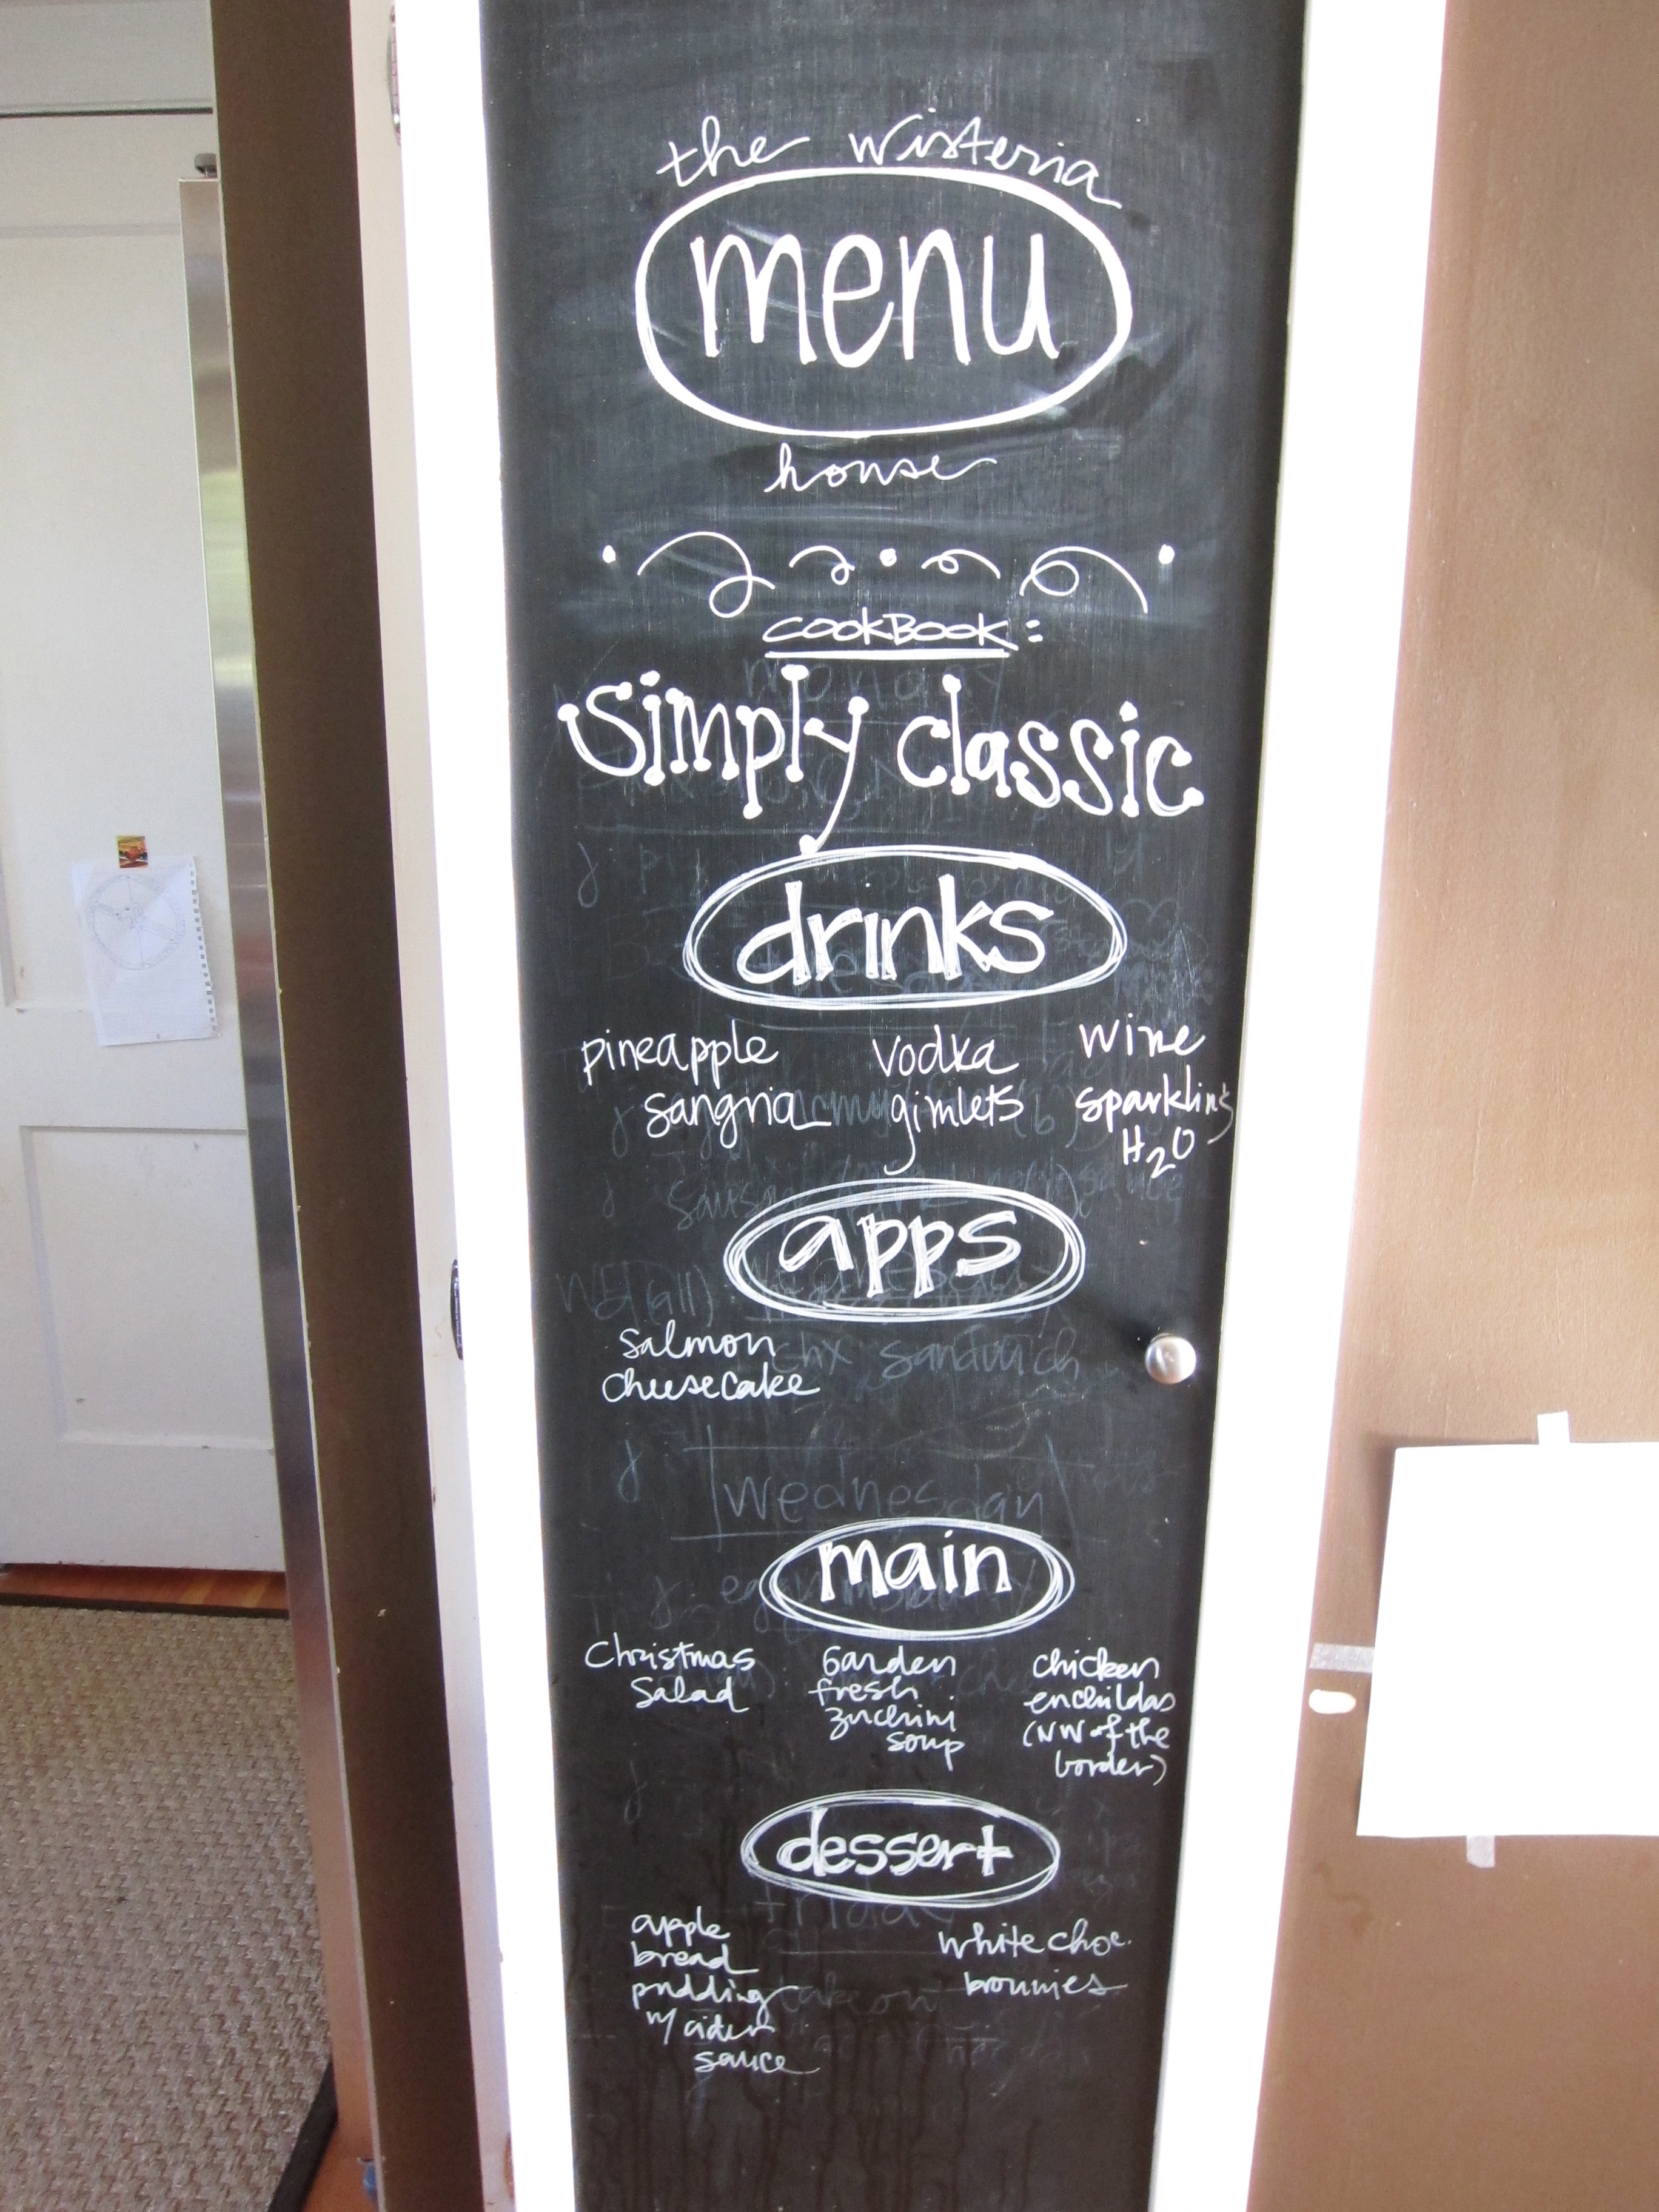 the Wisteria
menu
house
cookBook:
Simply classic
drinks
pineapple
sangria
vodka
gimlets
wine
sparkling
H2O
apps
salmon
cheesecake
chx sandwich
Wednesday
main
Christmas
Salad
Garden
fresh
zucchini
soup
chicken
enchildas
(NW of the
border)
dessert
friday
apple
bread
pudding
w/ cider
sauce
white choc.
brownies